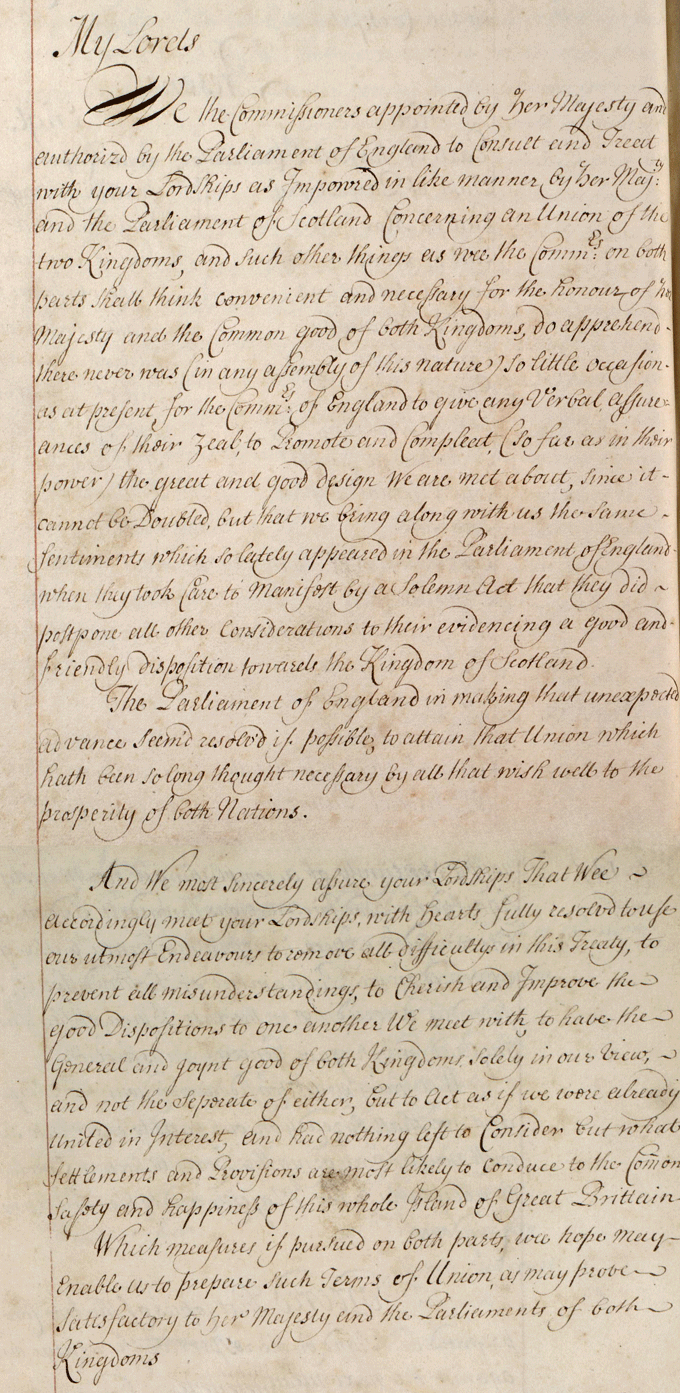 My Lords
We the Commissioners appointed by Her Majesty and
authorizd by the Parliament of England to Consult and Treat
with your Lordships as Impowred in like manner by Her Maj:ty
and the Parliament of Scotland Concerning an Union of the
two Kingdoms, and such other things as wee the Comm:rs on both
parts shall think convenient and necessary for the honour of her
Majesty and the Common good of both Kingdoms, do apprehend
there never was (in any assembly of this nature) so little occasion
as at present for the Comm:rs of England to give any Verbal assure=
ances of their zeal, to Promote and Compleat, (so far as in their
power) the great and good design We are met about, since it
cannot be Doubted, but that we bring along with us the same
sentiments which so lately appeared in the Parliament of England
when they took Care to Manifest by a Solemn Act that they did
postpone all other Considerations to their evidencing a good and
friendly disposition towards the Kingdom of Scotland.
The Parliament of England in making that unexpected
advance seemd resolvd if possible, to attain that Union which
hath been so long thought necessary by all that wish well to the
prosperity of both Nations.
And We most sincerely assure your Lordships That Wee
accordingly meet your Lordships, with hearts fully resolvd to use
our utmost Endeavours to remove all difficultys in this Treaty, to
prevent all misunderstandings, to Cherish and Improve the
good Dispositions to one another We meet with, to have the
General and joynt good of both Kingdoms solely in our View,
and not the Seperate of either, but to Act as if we were already
united in Interest, and had nothing left to Consider but what
settlements and Provisions are most likely to conduce to the Comon
safety and happiness of this whole Island of Great Brittain
Which measures if pursued on both parts, wee hope may
Enable us to prepare such Terms of Union, as may prove
satisfactory to her Majesty and the Parliaments of both
Kingdoms